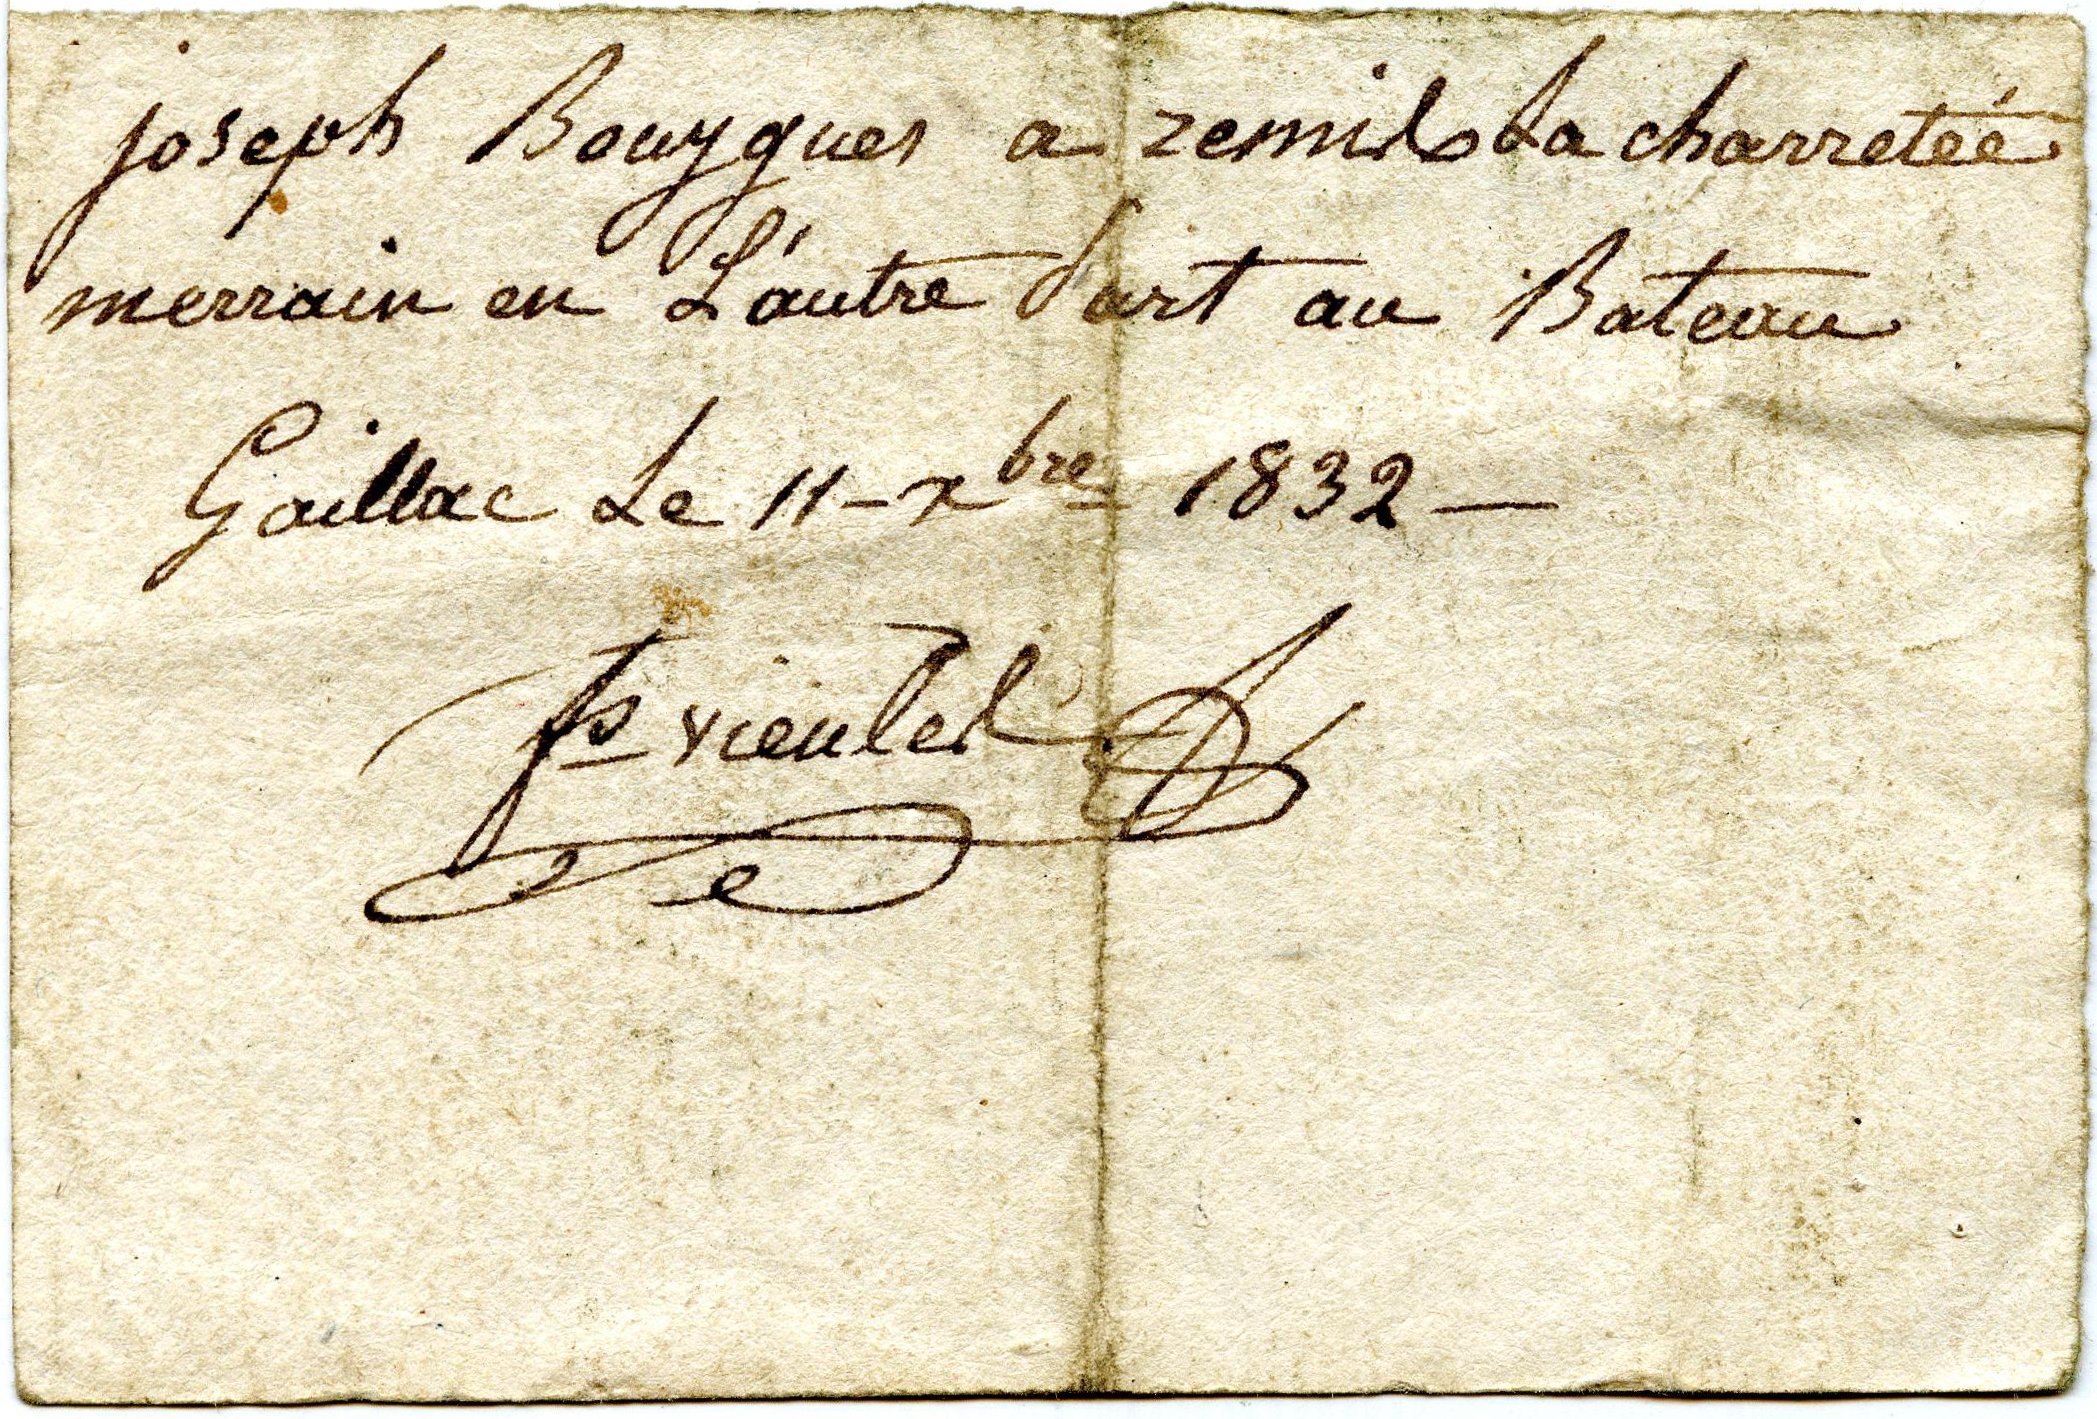 joseph Bouygues a remis La charreteé
merrain en L'autre Part au Bateau
Gaillac Le 11-xbre 1832 —
fs vieules